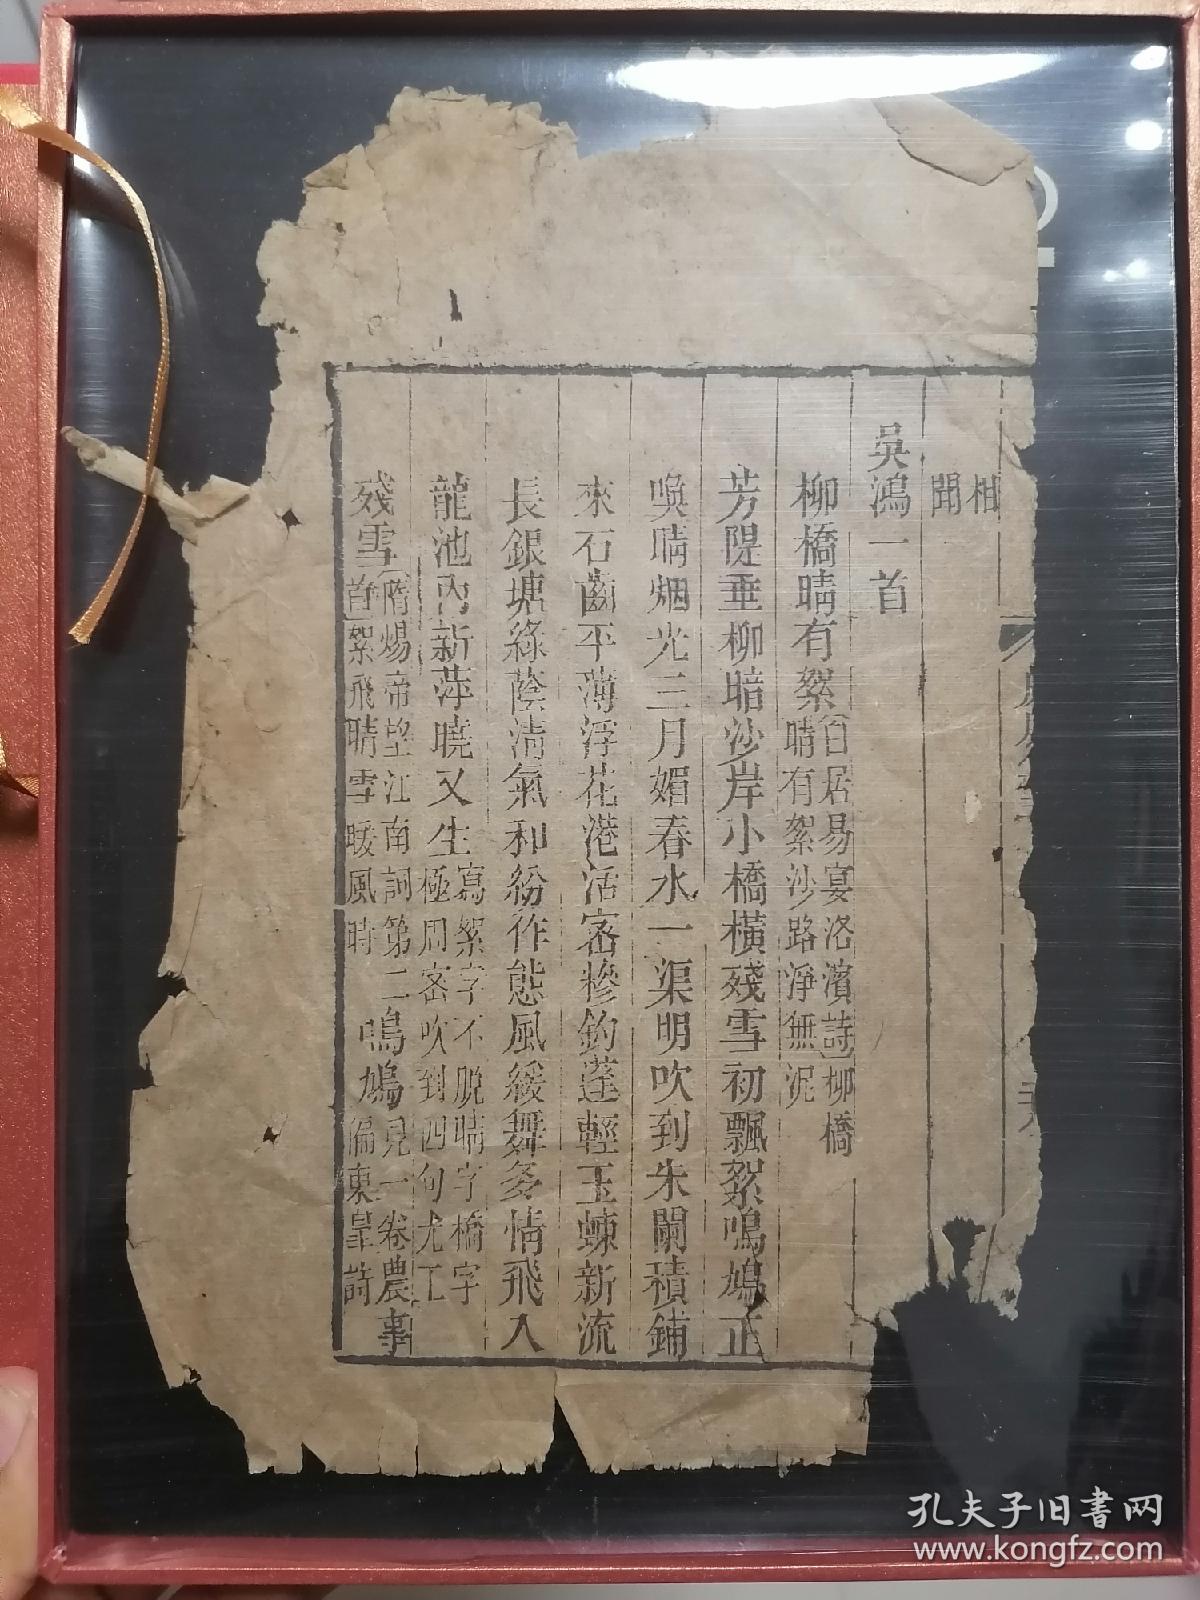 相
聞
吳鴻一首
柳橋晴有絮
白居易宴洛濱詩柳橋
晴有絮沙路淨無泥
芳隄垂柳暗沙岸小橋橫殘雪初飄絮鳴鳩正
喚晴烟光三月媚春水一渠明吹到朱闌積鋪
來石齒平薄浮花港活密糝釣蓬輕玉蝀新流
長銀塘綠蔭淸氣和紛作態風緩舞多情飛入
龍池內新萍曉又生
寫絮字不脫晴字橋字
極周密吹到四句尤工
殘雪
隋煬帝望江南詞第二
首絮飛晴雪暖風時
鳴鳩
見一卷農事
偏東皇詩
孔夫子旧书网
www.kongfz.com